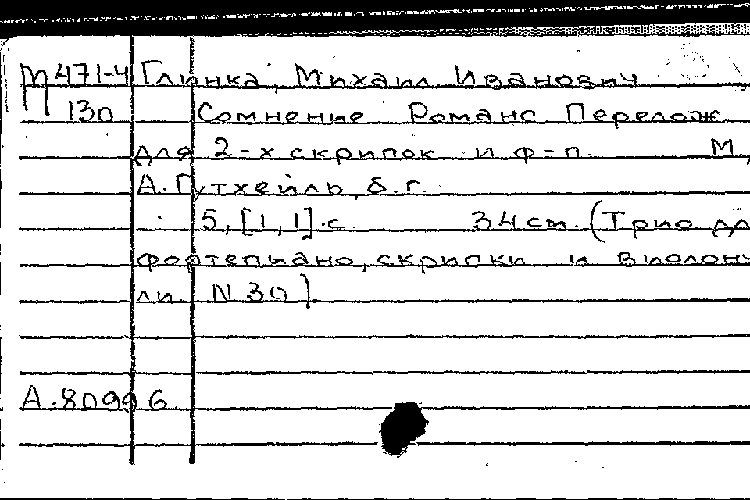 М471-4 Глинка, Михаил Иванович
П 130 Сомнение Романс Перелож
для 2-х скрипок и ф-п. М,
А. Гутхейль, б.г.
5, [1,1] с. 34 cm. (Трио дл
фортепиано, скрипки и виолонч
ли N 30).
А.80996